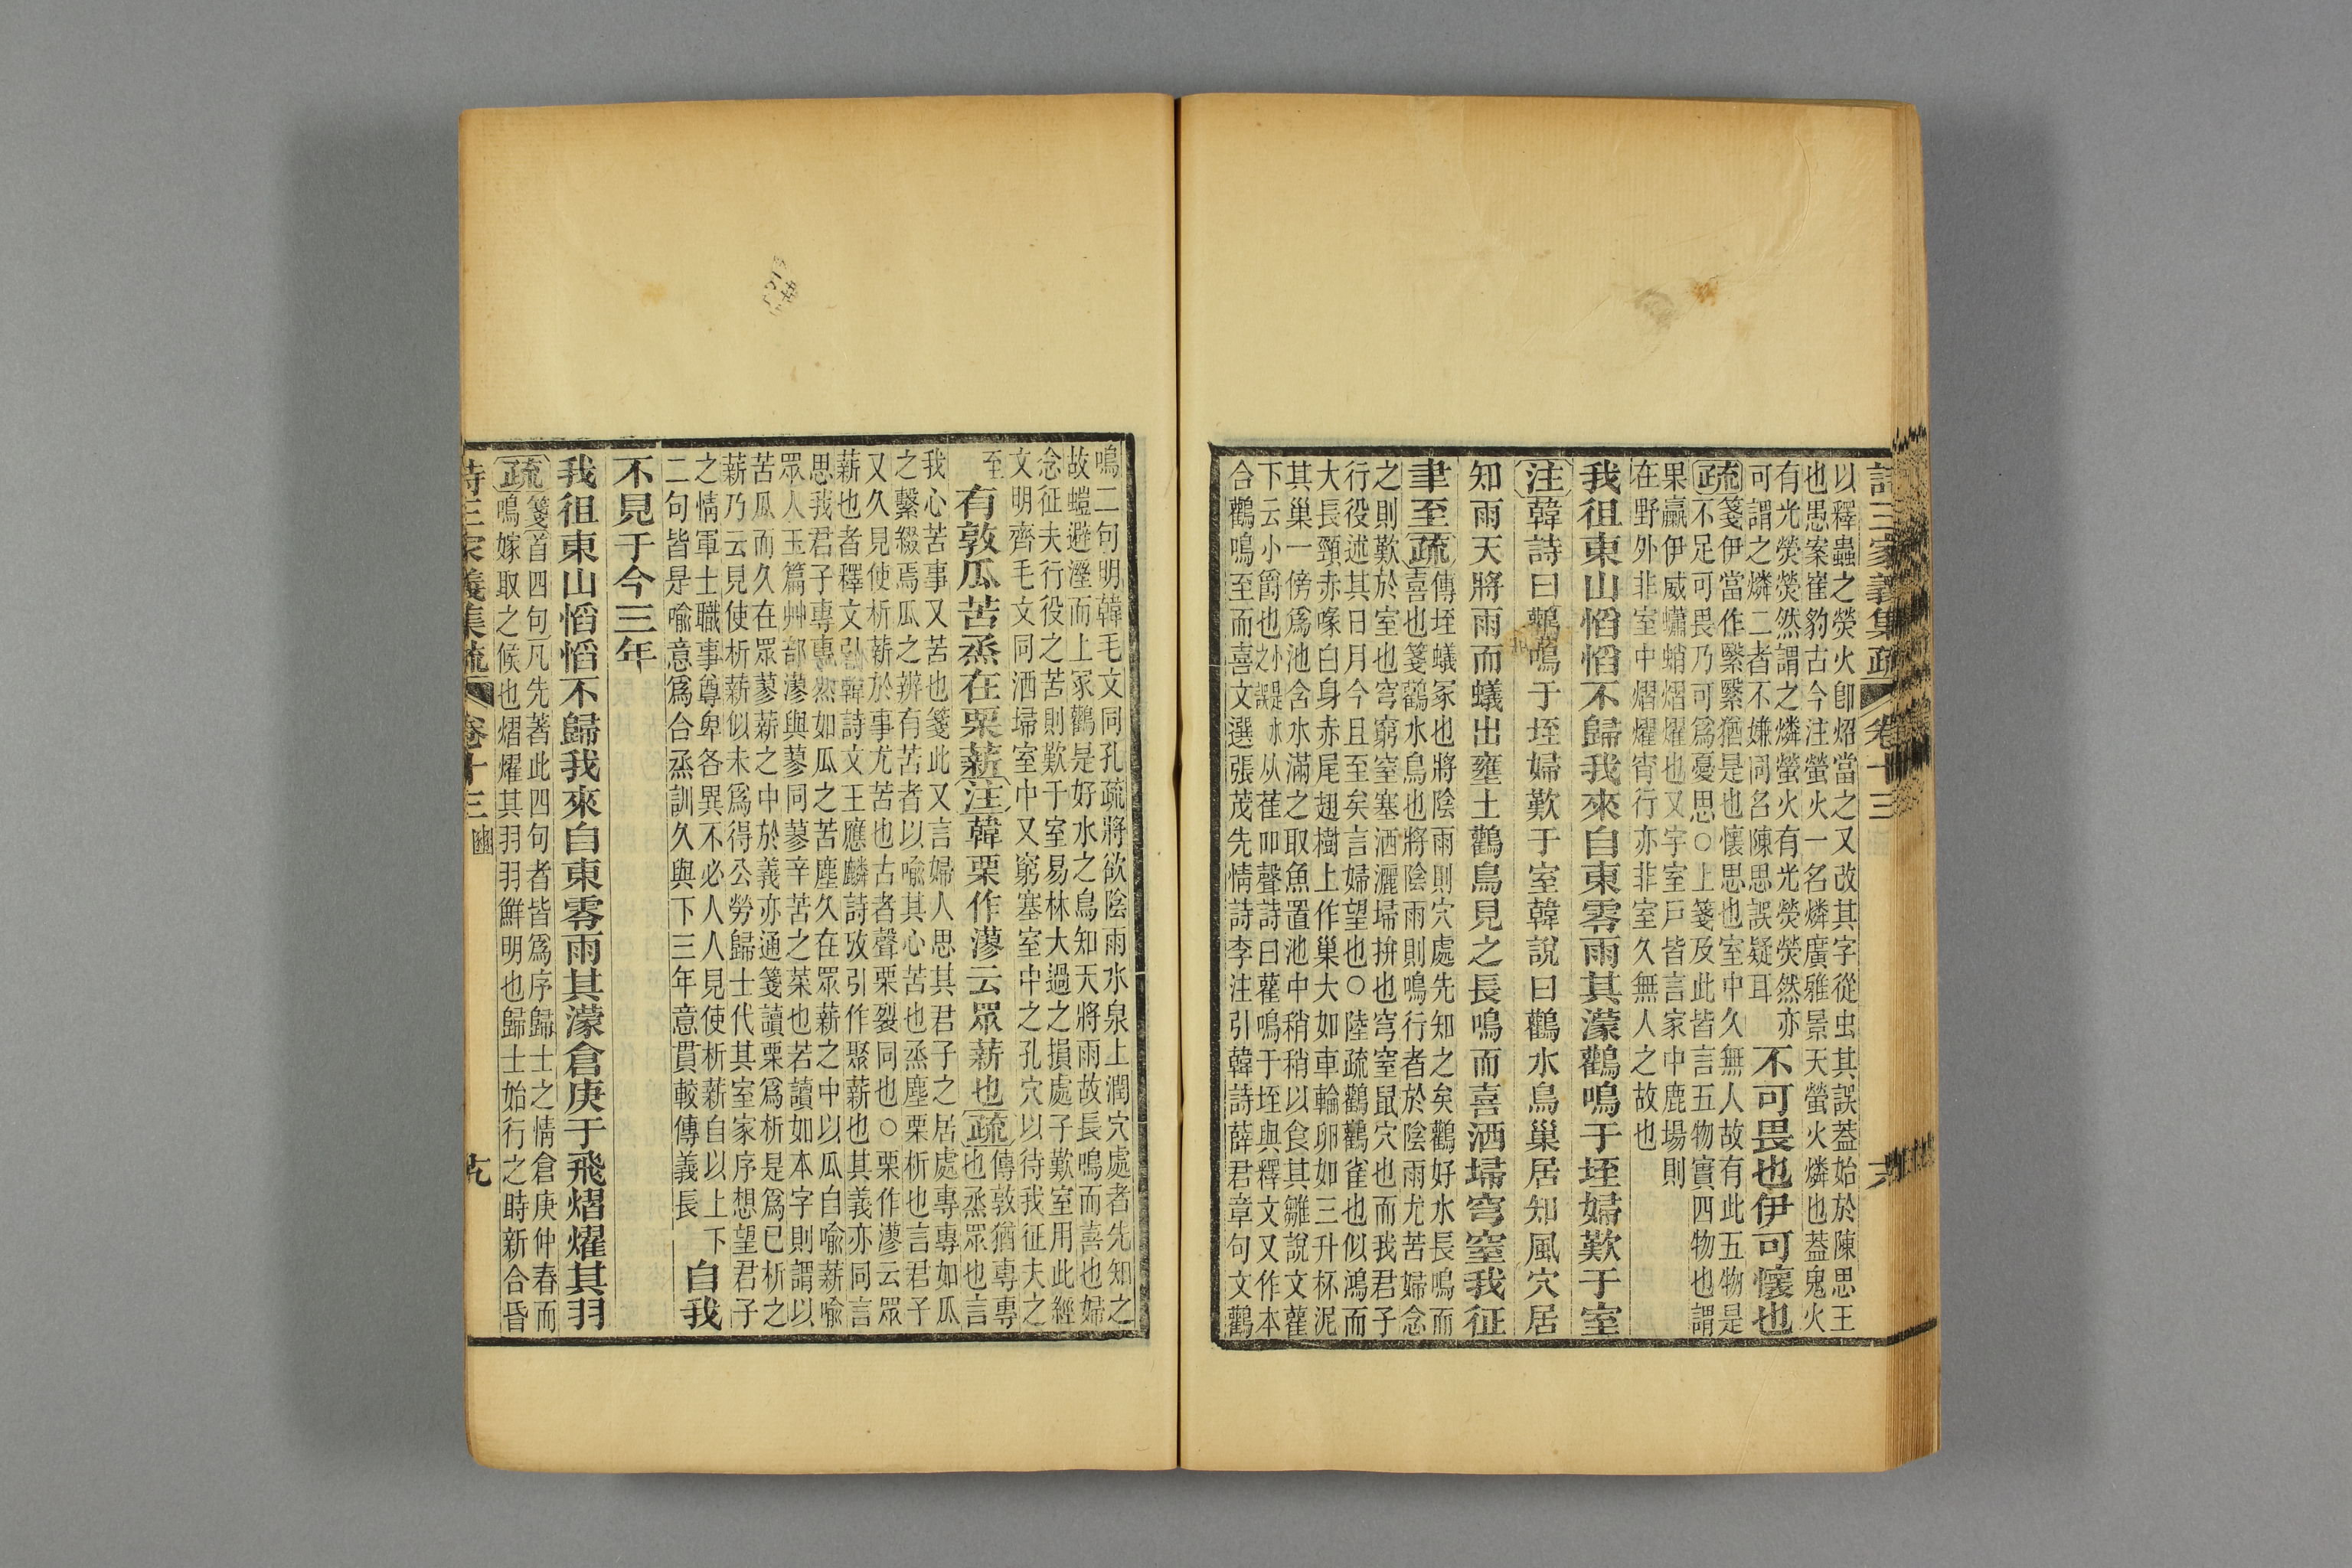 詩三家義集疏 卷十三
以釋蟲之熒火卽熠當之又改其字從虫其誤葢始於陳思王
也愚案崔豹古今注螢火一名燐廣雅景天螢火燐也葢鬼火
有光熒熒然謂之燐螢火有光熒熒然亦
可謂之燐二者不嫌同名陳思誤疑耳
不可畏也伊可懷也
疏
箋伊當作緊緊猶是也懷思也室中久無人故有此五物是
不足可畏乃可爲憂思○上箋及此皆言五物實四物也謂
果臝伊威蠨蛸熠燿也又字室戸皆言家中鹿場則
在野外非室中熠燿宵行亦非室久無人之故也
我徂東山慆慆不歸我來自東零雨其濛鸛鳴于垤婦歎于室
注韓詩曰鸛鳴于垤婦歎于室韓說曰鸛水鳥巢居知風穴居
知雨天將雨而蟻出壅土鸛鳥見之長鳴而喜洒埽穹窒我征
聿至疏
傳垤蟻冢也將陰雨則穴處先知之矣鸛好水長鳴而
喜也箋鸛水鳥也將陰雨則鳴行者於陰雨尤苦婦念
之則歎於室也穹窮窒塞洒灑埽拚也穹窒鼠穴也而我君子
行役述其日月今且至矣言婦望也○陸疏鸛鸛雀也似鴻而
大長頸赤喙白身赤尾翅樹上作巢大如車輪卵如三升杯泥
其巢一傍爲池含水滿之取魚置池中稍稍以食其雛說文雚
下云小爵也从萑吅聲詩曰雚鳴于垤與釋文又作本
合鸛鳴至而喜文選張茂先情詩李注引韓詩薛君章句文鸛
鳴二句明韓毛文同孔疏將欲陰雨水泉上潤穴處者先知之
故螘避溼而上冢鸛是好水之鳥知天將雨故長鳴而喜也婦
念征夫行役之苦則歎于室易林大過之損處子歎室用此經
文明齊毛文同洒埽室中又窮塞室中之孔穴以待我征夫之
至
有敦瓜苦烝在栗薪注韓栗作蓼云眾薪也疏
傳敦猶專專
也烝眾也言
我心苦事又苦也箋此又言婦人思其君子之居處專專如瓜
之繫綴焉瓜之辨有苦者以喻其心苦也烝塵栗析也言君子
又久見使析薪於事尤苦也古者聲栗裂同也○栗作蓼云眾
薪也者釋文引韓詩文王應麟詩攷引作聚薪也其義亦同言
思我君子專專然如瓜之苦塵久在眾薪之中以瓜自喻薪喻
眾人玉篇艸部蓼與蓼同蓼辛苦之菜也若讀如本字則謂以
苦瓜而久在眾蓼薪之中於義亦通箋讀栗爲析是爲已析之
薪乃云見使析薪似未爲得公勞歸士代其室家序想望君子
之情軍士職事尊卑各異不必人人見使析薪自以上下
二句皆是喻意爲合烝訓久與下三年意貫較傳義長
自我
不見于今三年
我徂東山慆慆不歸我來自東零雨其濛倉庚于飛熠燿其羽
疏
箋首四句凡先著此四句者皆爲序歸士之情倉庚仲春而
鳴嫁取之候也熠燿其羽羽鮮明也歸士始行之時新合昏
詩三家義集疏 卷十三 豳